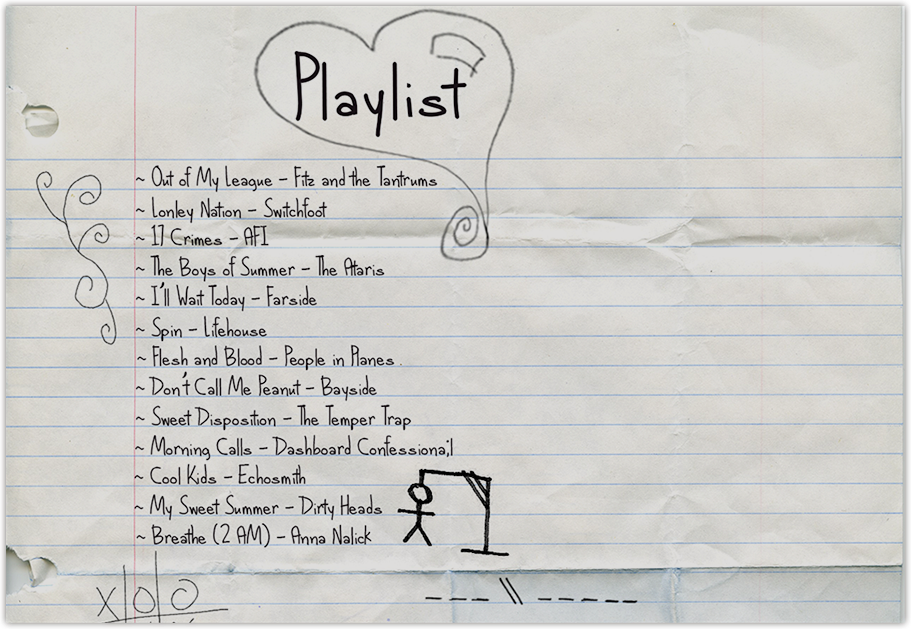 Playlist
~ Out of My League – Fitz and the Tantrums
~ Lonley Nation – Switchfoot
~ 17 Crimes – AFI
~ The Boys of Summer – The Ataris
~ I'll Wait Today – Farside
~ Spin – Lifehouse
~ Flesh and Blood – People in Planes .
~ Don't Call Me Peanut – Bayside
~ Sweet Disposition – The Temper Trap
~ Morning Calls – Dashboard Confessiona;l
~ Cool Kids – Echosmith
~ My Sweet Summer – Dirty Heads
~ Breathe (2 AM) – Anna Nalick
X|O|O
_ _ _ \\ _ _ _ _ _